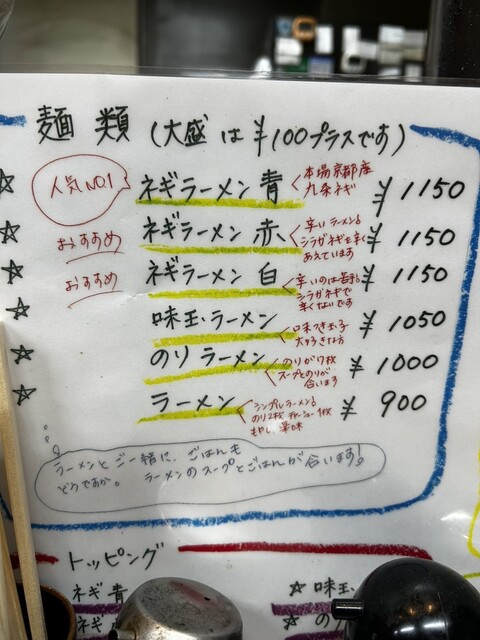 麺 類 (大盛 は ¥100プラスです)
☆ 人気NO1 ネギラーメン 青 本場京都産 九条ネギ ¥1150
☆ おすすめ ネギラーメン 赤 辛いラーメン シラガネギを辛くあえています ¥1150
☆ おすすめ ネギラーメン 白 辛いのは苦手 シラガネギで辛くないです ¥1150
☆ 味玉ラーメン 味つき玉子 大好きな方 ¥1050
☆ のりラーメン のりが7枚 スープとのりが合います ¥1000
☆ ラーメン シンプルラーメン のり2枚 チャーシュー1枚 もやし 薬味 ¥900
ラーメンとご一緒に、ごはんも
どうですか。 ラーメンのスープとごはんが合います!
トッピング
ネギ 青 ☆ 味玉
ネギ ☆ の